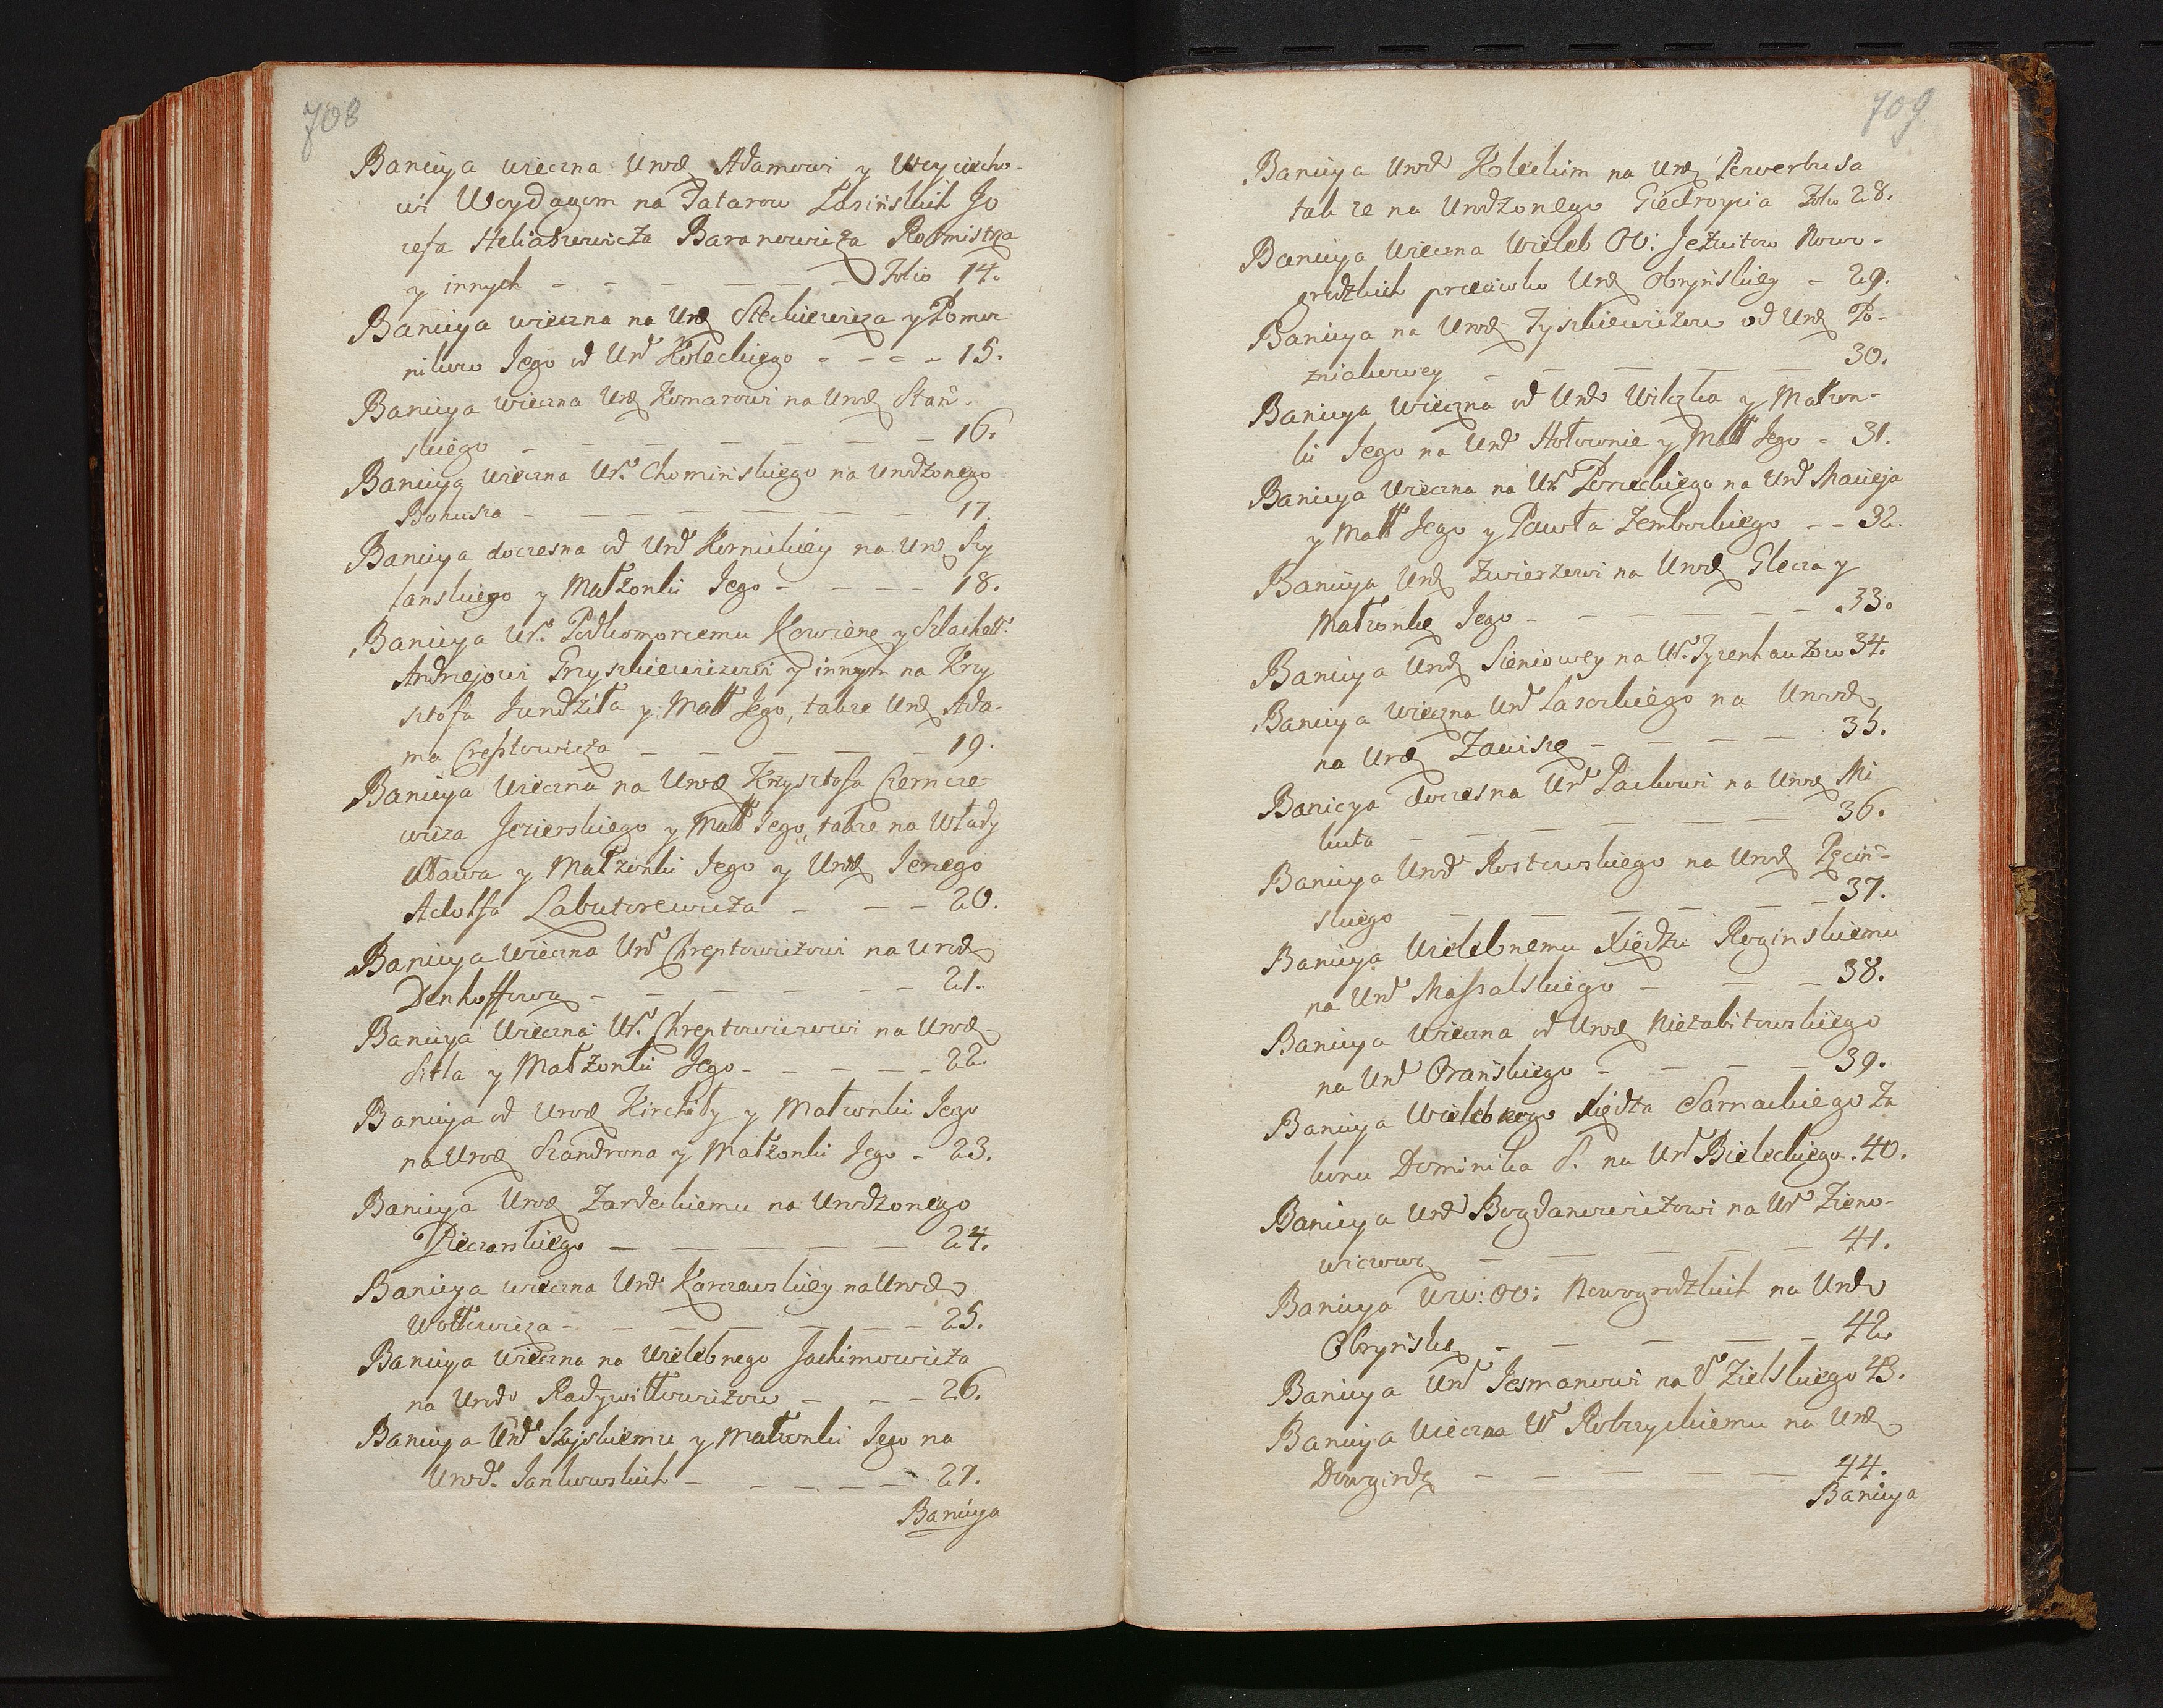 708
Banicya wieczna Urodz Adamowi y Woyciecho-
wi Woydagom na Tatarow Łosińskich Jo
zefa Heliaszewicza Baranowicza Rotmistrza
y innych - - - - - - Folio 14.
Banicya wieczna na Urodz Steckiewicza y Pomoc
nikow Jego od Ur Kołeckiego - - - - 15.
Banicya wieczna Urodz Komarowi na Urodz Stań-
skiego - - - - - - - 16.
Banicya wieczna Ur. Chomińskiego na Urodzonego
Bohusza - - - - - - - 17.
Banicya doczesna od Urd Kornickiey na Uro Szy
łanskiego y Małżonki Jego - - - - 18.
Banicya Ur. Podkomorzemu Kowieńę y Szlachett.
Andrzejowi Gryszkiewiczowi y innym na Krzy
sztofa Jundziła y Matt Jego, takze Urodz Ada-
ma Chreptowicza - - - - - - 19.
Banicya Wieczna na Urodz Krzysztofa Czerncze-
wicza Jezierskiego y Matt Jego, takze na Włady
sława y Małzonki Jego y Urodz Jerzego
Adolfa Labutorewicza - - - 20.
Banicya wieczna Urd Chreptowiczowi na Urodz
Denhoffową - - - - - - 21.
Banicya Wieczna Ur. Chreptowiczowi na Urodz
Sitla y Małżonki Jego - - - - - 22.
Banicya od Urodz Kirchity y Małzonki Jego
na Urodz Szandrona y Małżonki Jego - 23.
Banicya Urodz Zardeckiemu na Urodzonego
Pieczorskiego - - - - - 24.
Banicya wieczna Urd Karczewskiey na Urodz
Wołłowicza - - - - - - - 25.
Banicya wieczna na Wielebnego Jachimowicza
na Urodz Radziwiłłowiczow - - - 26.
Banicya Urd Szyskiemu y Małzonki Jego na
Urod. Jankowskich - - - - - 27.
Banicya
709
Banicya Urod Kołeckim na Urodz Perwerbusa
takze na Urodzonego Giedroycia Folio 28.
Banicya Wieczna Wieleb OO: Jezuitow Nowo-
grodzkich przeciwko Urodz Obryńskiey - 29.
Banicya na Urodz Tyszkiewiczow od Urodz Po-
zniakowey - - - - - 30.
Banicya Wieczna od Urd Wilczka y Małzon-
ki Jego na Urd Hołownie y Matt Jego - 31.
Banicya Wieczna na Ur Porzeckiego na Urd Macieja
y Matt Jego y Pawła Zemborskiego - - 32.
Banicya Urodz Zwierzewi na Urodz Gleczá y
Małzonkę Jego - - - - - - 33.
Banicya Urodz Sieniowey na Ur. Tyzenhauzow 34.
Banicya Wieczna Urd Lasockiego na Urodz
na Urodz Zawiszę - - - - 35.
Banicya doczesna Ur Packowi na Urodz Mi
kuta - - - - - - - 36.
Banicya Urod Rostowskiego na Urodz Pęciń-
skiego - - - - - - 37.
Banicya Wielebnemu Xiędzu Roginskiemu
na Urd Massalskiego - - - 38.
Banicya Wieczna od Urodz Niezabitowskiego
na Urd Orańskiego - - - - 39.
Banicya Wielebnego Xiędza Sarnackiego Za
konu Dominika S. na Ur Bieleckiego. 40.
Banicya Urd Bogdanowiczowi na Ur Zieno-
wiczową - - - - - 41.
Banicya WW: OO: Nowogrodzkich na Urdz
Obryńską - - - - - 42.
Banicya Urd Jesmanowi na Ur Zielskiego 43.
Banicya Wieczna Ur Kobrzyckiemu na Urodz
Dowgirdę - - - - - - 44.
Banicya